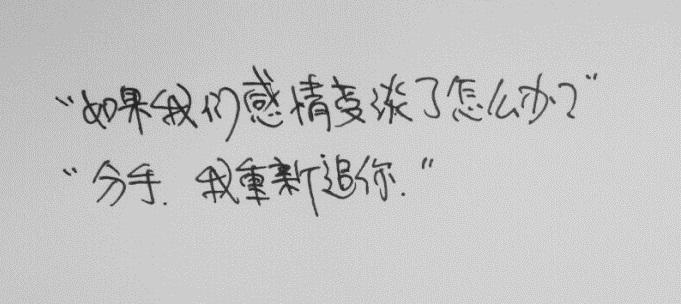 “如果我们感情变淡了怎么办？”
“分手.我重新追你.”